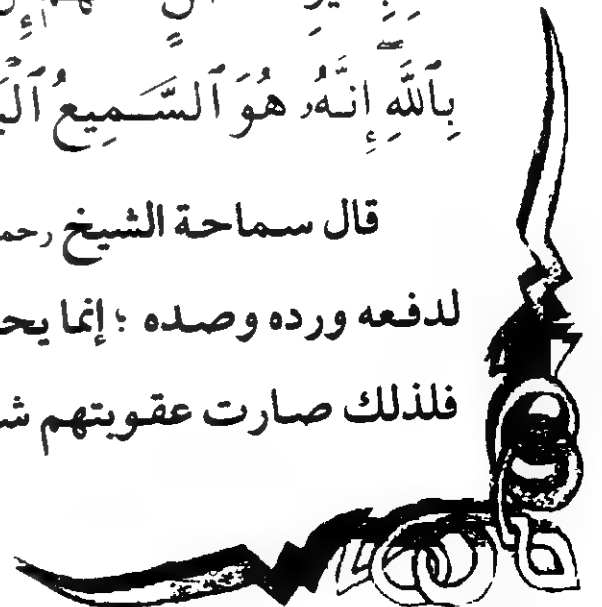 بِٱللَّهِ إِنَّهُۥ هُوَ ٱلسَّمِيعُ
قال سماحة الشيخ
لدفعه ورده وصده ؛ إنما
فلذلك صارت عقوبتهم